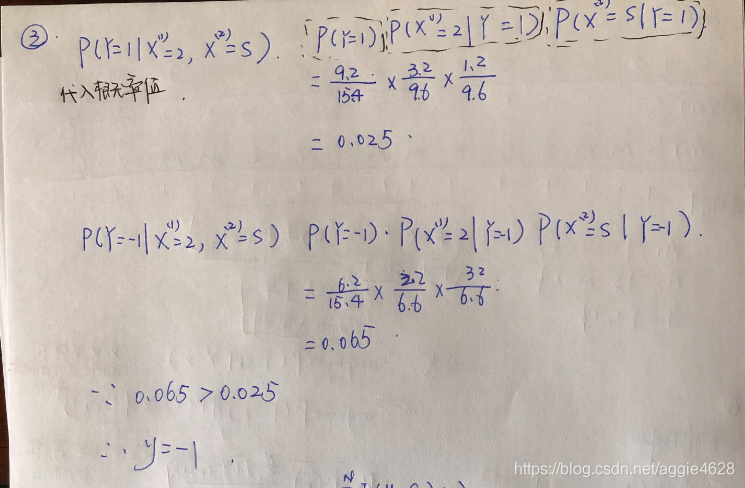 ③ P(Y=1|X⁽¹⁾=2, X⁽²⁾=S). P(Y=1) P(X⁽¹⁾=2|Y=1) P(X⁽²⁾=S|Y=1)
代入概率值. = 9.2/15.4 × 3.2/9.6 × 1.2/9.6
= 0.025
P(Y=-1|X⁽¹⁾=2, X⁽²⁾=S) P(Y=-1)·P(X⁽¹⁾=2|Y=-1) P(X⁽²⁾=S|Y=-1).
= 6.2/15.4 × 2.2/6.6 × 3.2/6.6
= 0.065
∵ 0.065 > 0.025
∴ y=-1.
https://blog.csdn.net/aggie4628